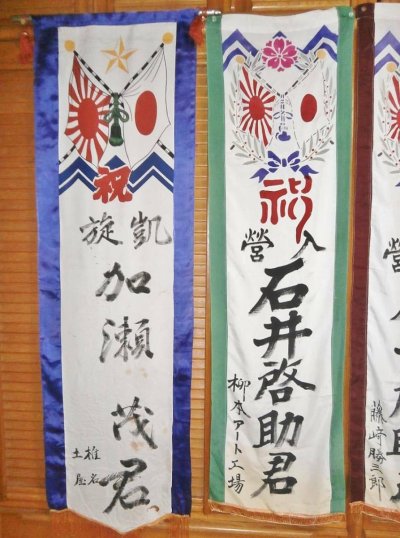 祝
凱旋
加瀬茂君
椎名
土屋
祝
入営
石井啓助君
柳本アート工場
藤崎勝三郎